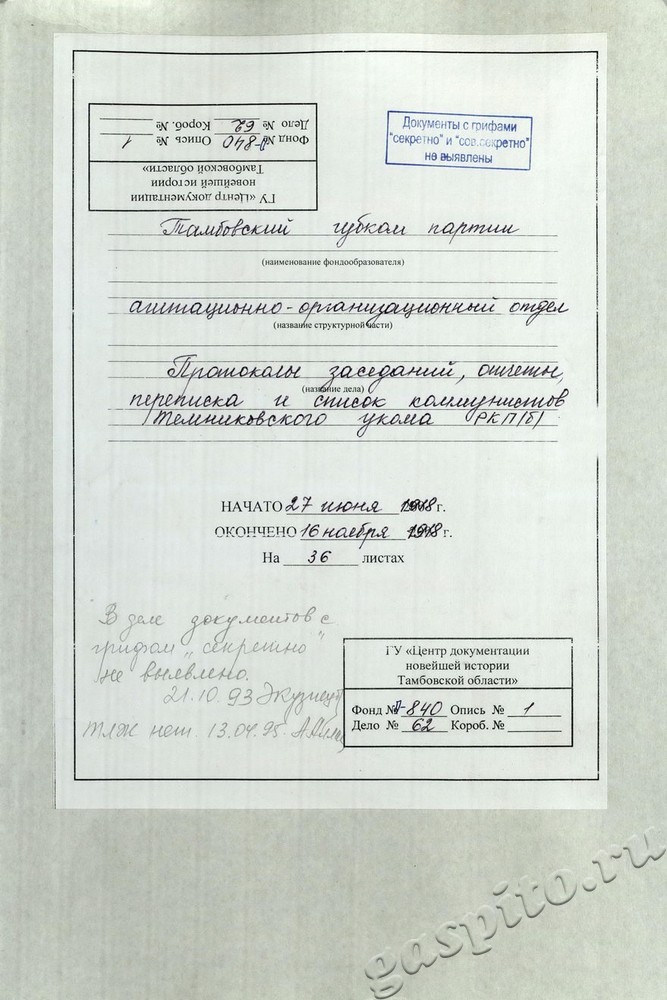 ГУ «Центр документации
новейшей истории
Тамбовской области»
Фонд № П-840 Опись № 1
Дело № 62 Короб. №
Документы с грифами
"секретно" и "сов.секретно"
не выявлены
Тамбовский губком партии
(наименование фондообразователя)
агитационно-организационный отдел
(название структурной части)
Протоколы заседаний, отчеты,
(название дела)
переписка и список коммунистов
Темниковского укома РКП(б)
НАЧАТО 27 июня 1918 г.
ОКОНЧЕНО 16 ноября 1918 г.
На 36 листах
В деле документов с
грифом „секретно"
не выявлено.
21.10.93
нет. 13.04.95.
ГУ «Центр документации
новейшей истории
Тамбовской области»
Фонд № П-840 Опись № 1
Дело № 62 Короб. №
gaspito.ru